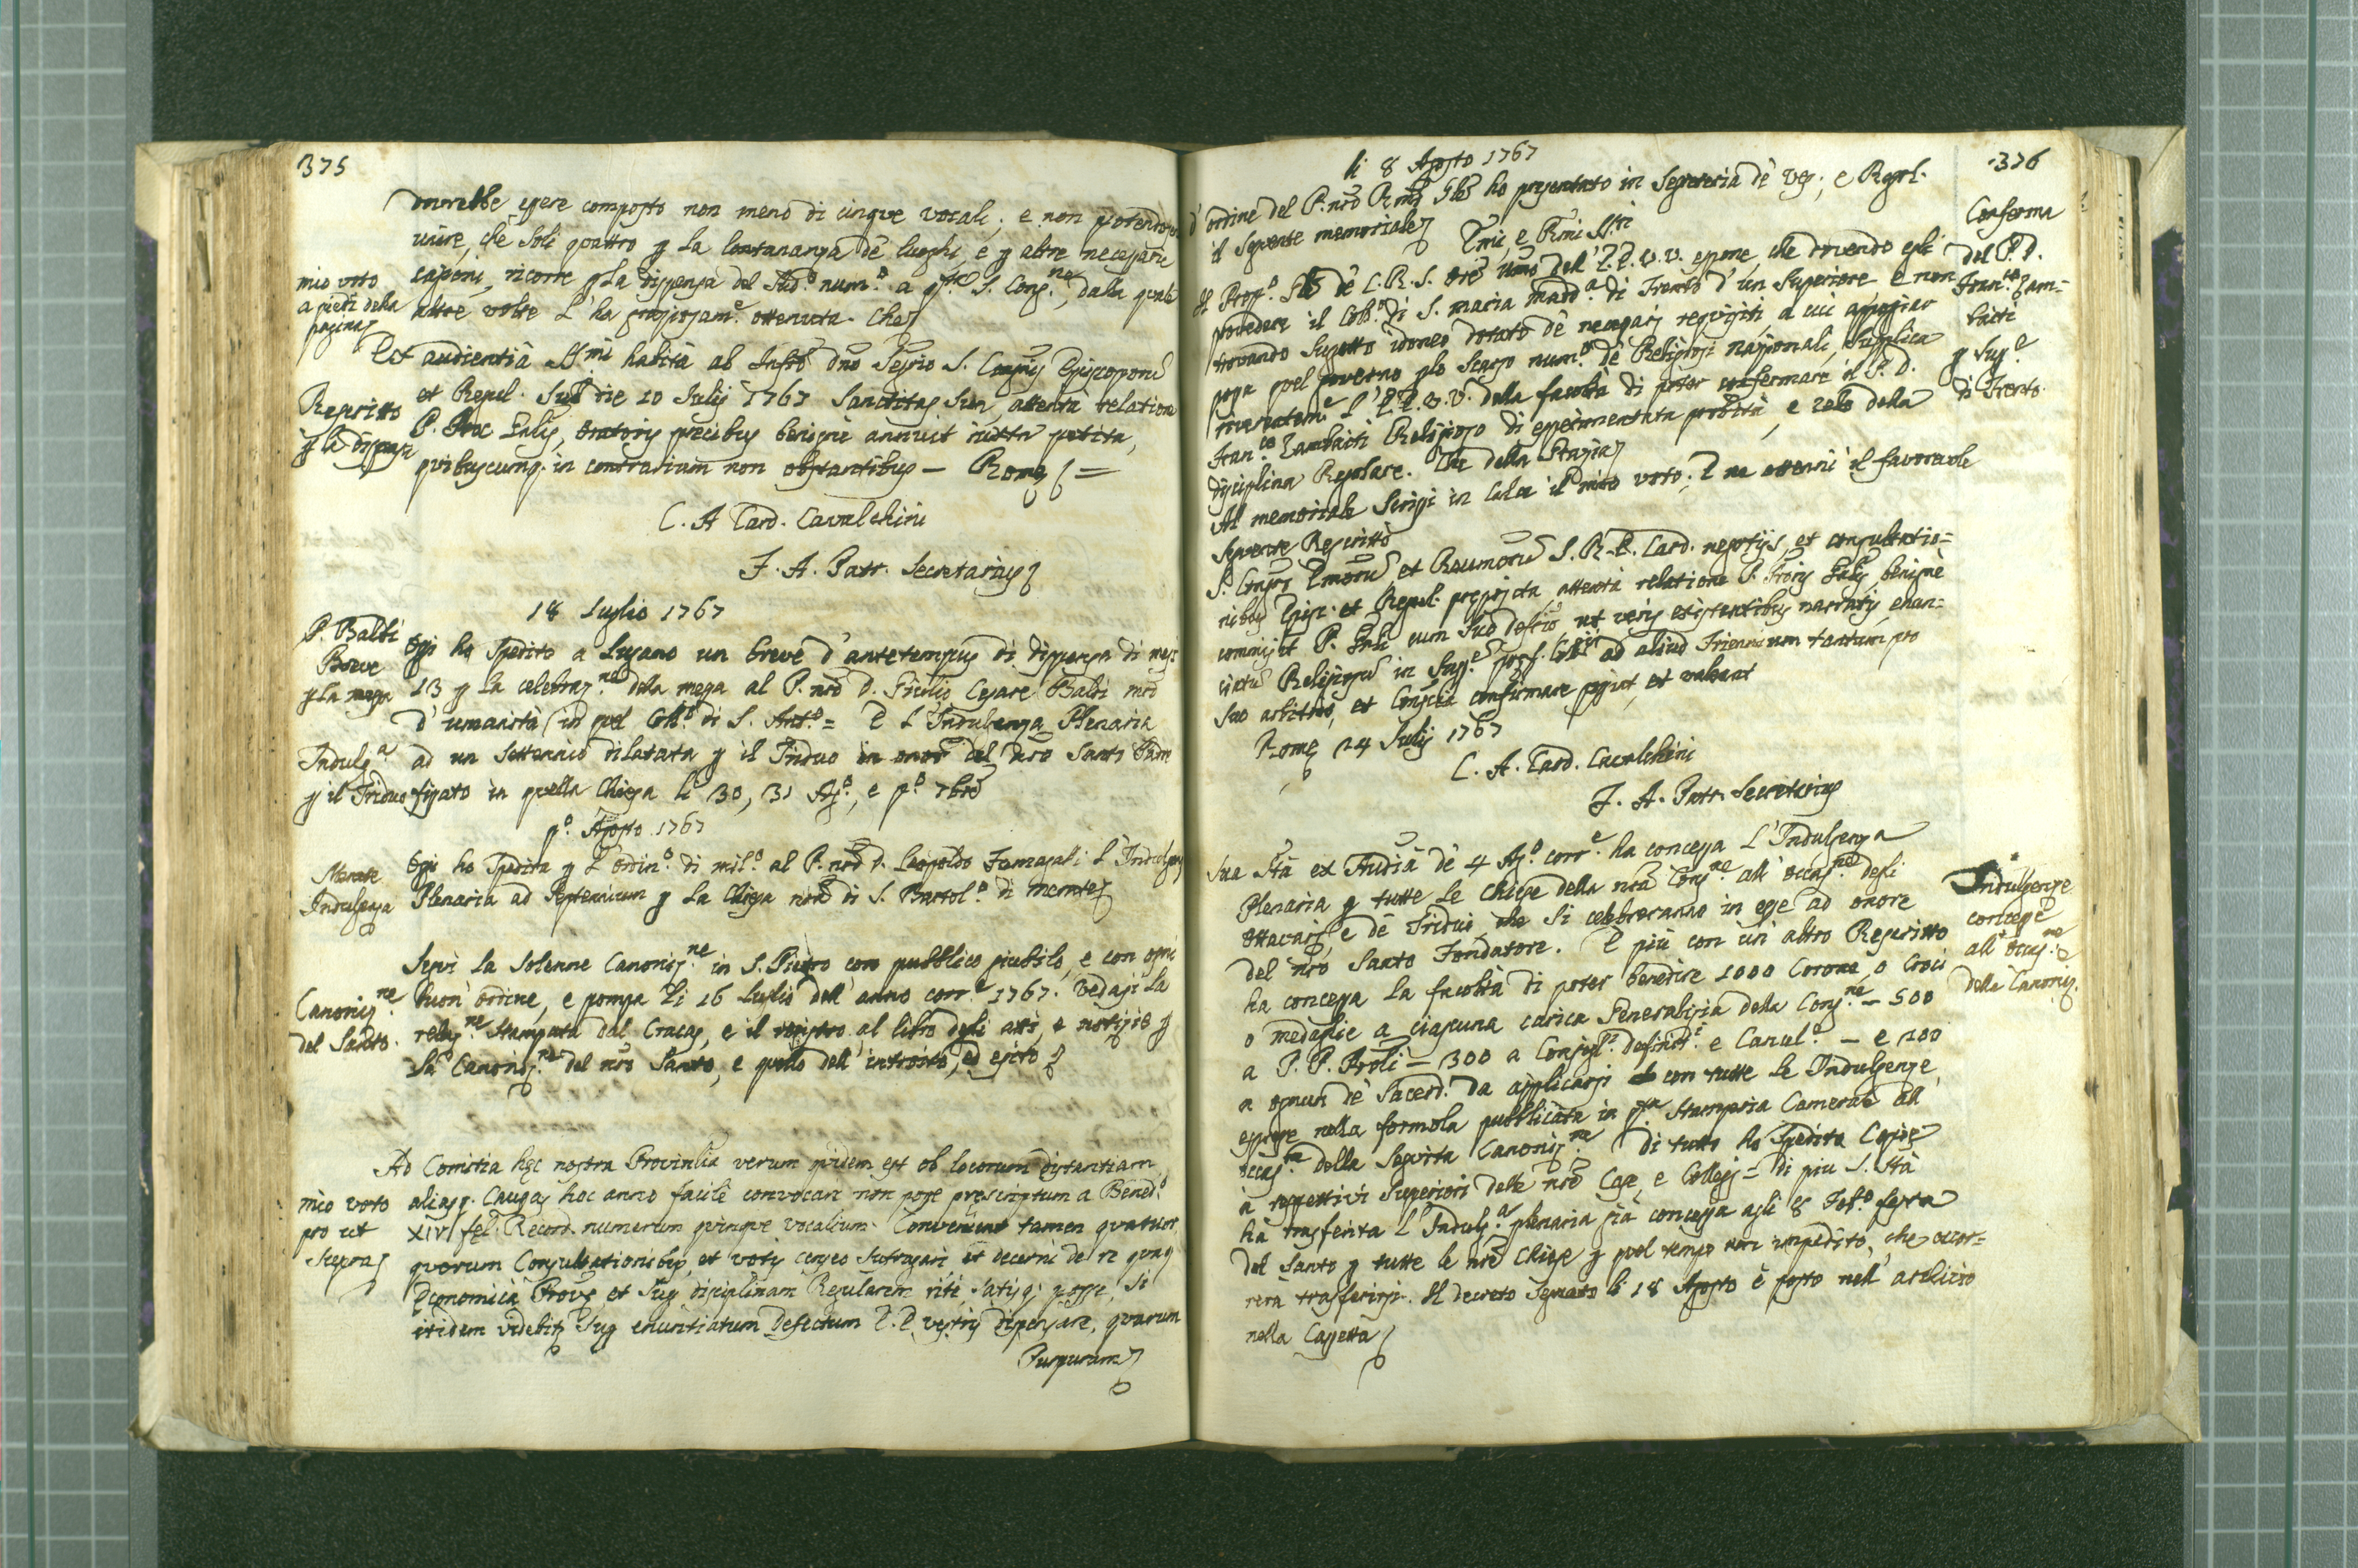 375
dovrebbe essere composto non meno di cinque vocali, e non potendosi
unire, che soli quattro p la lontananza de' luoghi, e p altre necessarie
mio voto
a piedi della
pagina
caggioni, ricorre p la dispensa del sud.o num.o a q.sta S. Cong.ne, dalla quale
altre volte l'ha graziosam.e ottenuta. Che
Ex audientia SSmi habita ab Infro Dno Segrio S. Congnis Episcoporū
Rescritto
p la dispensa
et Regul. sub die 10 Julij 1767 Sanctitas Sua, attenta relatione
P. Proc Galis, oratoris precibus benigne annuit iuxta petita,
quibuscumq. in contrarium non obstantibus — Romæ =
C. A Card. Cavalchini
F. A. Patr. Secretarius
18 Luglio 1767
P. Balbi
Breve
p la messa
Oggi ho spedito a Lugano un breve d'antetempus di dispensa di mesi
13 p la celebraz.ne della messa al P. nrō D. Giulio Cesare Balbi mrō
d'umanità in quel Coll.o di S. Ant.o = E l'Indulgenza Plenaria
Indulg.a
p il Triduo
ad un settennio dilatata p il Triduo in onor del nrō Santo Padre
fissato in quella Chiesa li 30, 31 Ag.o, e p.o 7bre
p.o Agosto 1767
Merate
Indulgenza
Oggi ho spedita p l'ordin.o di mil.o al P. nrō D. Leopoldo Fumagalli l'Indulgenza
Plenaria ad septennium p la Chiesa nrā di S. Bartol.o di merate
Seguì la solenne Canoniz.ne in S. Pietro con pubblico giubilo, e con ogni
Canoniz.ne
del Santo.
buon'ordine, e pompa li 16 Luglio dell'anno corr.e 1767. Vedasi la
relaz.ne stampata dal Cracas, e il registro al libro degli atti, e notizie p
la Canoniz.ne del nrō Santo, e quello dell'introito, ed esito
Ad Comitia hæc nostra Provincilia verum quidem est ob locorum distantiam
mio voto
pro ut
supra
aliasq. causas hoc anno facile convocari non posse præscriptum a Bened.o
XIV fel. Record. numerum quinque vocalium. Conveniunt tamen quatuor
quorum Consultationibus, et votis censeo suffragari et decerni de re quaq.
Economica Provæ, et suæ disciplinam Regularem rite, satisq. posse, si
itidem videbitr suæ enuntiatum defectum E. E. vestris dispensare, quarum
Purpuram
li 8 Agosto 1767
376
d'ordine del P. nrō Rmō Gle ho presentato in Segreteria de' Ves., e Regol.
il seguente memoriale
Conferma
del P. D.
Fran.co Zam-
baiti
p Sup.e
di Trento.
Emi, e Rmi SS.ri
Il Proc.e Gle de' C.R.S. Ore umo dell'E.E. V.V. espone, che dovendo egli
provedere il Coll.o di S. maria madd.a di Trento d'un Superiore e non
trovando sugetto idoneo dotato de' necessarj requisiti a cui appoggiar
possa quel governo plo scarso num.o de' Religiosi nazionali, supplica
riverentem.e l'E.E. V.V. della facoltà di poter confermare il P. D.
Fran.co Zambaiti Religioso di esperimentata probità, e zelo della
disciplina Regolare. Che della Grazia
Al memoriale scrissi in calce il mio voto, e ne ottenni il favorevole
seguente Rescritto
S. Congrō Emorū, et Rmorū S. R. E. Card. negotijs, et consultatio=
nibus Episc. et Regul. præposita, attenta relatione P. Proris Galis, benigne
commisit P. Gnli cum suo deffrio ut veris existentibus narratis, enun=
ciatū Religiosū in Supp.e præf. Collij ad aliud Triennium tantum, pro
suo arbitrio, et Conscia confirmare possint, et valeant
Romæ 24 Julij 1767
C. A. Card. Cavalchini
F. A. Patr. Secretarius
Sua Stà ex Audià de' 4 Ag.o corr.e ha concessa l'Indulgenza
Plenaria p tutte le Chiese della nrā Cong.ne all'occas.ne degli
Indulgenze
concesse
all'occas.ne
della Canoniz.
ottavarj, e de' Tridui che si celebraranno in esse ad onore
del nrō Santo Fondatore. E più con un altro Rescritto
ha concessa la facoltà di poter benedire 1000 Corone, o Croci
o medaglie a ciascuna carica Generalizia della Cong.ne — 500
a P. P. Proli — 300 a Consigl.i Definit.i e Cancel.i — e 100
a ognun de' Sacerd.i da applicarsi con tutte le Indulgenze
espresse nella formola pubblicata in q.sta Stamperia Camerale all'
occas.ne della seguita Canoniz.ne Di tutto ho spedito Copie
a' rispettivi Superiori delle nrē Case, e Collegj = di piu S. Stà
ha trasferita l'Indulg.a plenaria già concessa agli 8 Feb.o festa
del Santo p tutte le nrē Chiese p quel tempo non impedito, che occor=
rerà trasferirsi. Il decreto segnato li 18 Agosto è posto nell'archivio
nella Cassetta